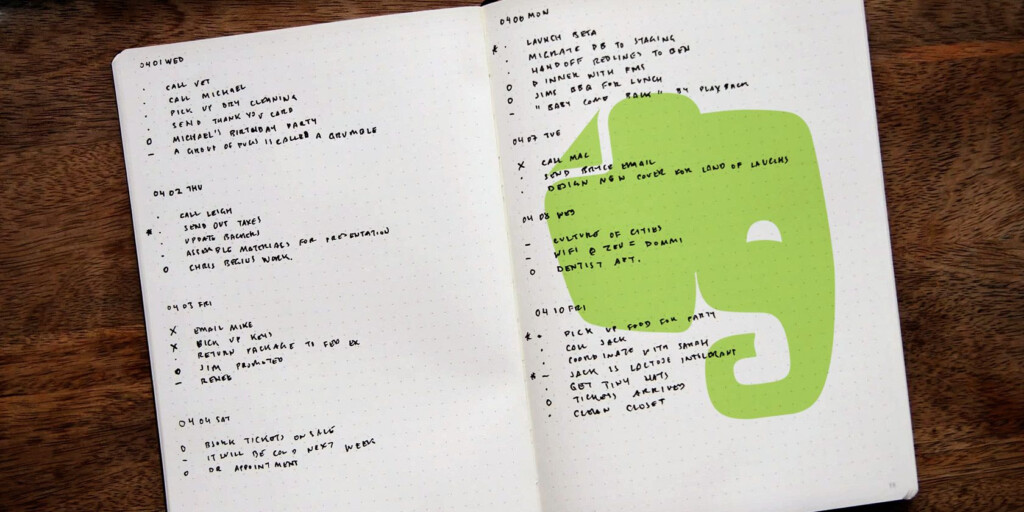 04 01 WED
. CALL VET
. CALL MICHAEL
. PICK UP DRY CLEANING
. SEND THANK YOU CARD
O MICHAEL'S BIRTHDAY PARTY
– A GROUP OF PUGS IS CALLED A GRUMBLE
04 02 THU
. CALL LEIGH
* . SEND OUT TAXES
. UPDATE BACKERS
. ASSEMBLE MATERIALS FOR PRESENTATION
O CHRIS BEGINS WORK.
04 03 FRI
X EMAIL MIKE
X PICK UP KEYS
. RETURN PACKAGE TO FED EX
O JIM PROMOTED
– RENEE
04 04 SAT
O BJORK TICKETS ON SALE
– IT WILL BE COLD NEXT WEEK
O DR APPOINTMENT
04 06 MON
* . LAUNCH BETA
. MIGRATE DB TO STAGING
. HANDOFF REDLINES TO BEN
O DINNER WITH FMS
O JIMS BBQ FOR LUNCH
– "BABY COME BACK" BY PLAYBACK
04 07 TUE
X CALL MAC
. SEND BRYCE EMAIL
. DESIGN NEW COVER FOR LAND OF LAUGHS
04 08 WED
– CULTURE OF CITIES
– WIFI @
O DENTIST APT.
04 10 FRI
* . PICK UP FOOD FOR PARTY
. CALL JACK
. COORDINATE WITH SARAH
* – JACK IS LACTOSE INTOLERANT
. GET TINY HATS
O TICKETS ARRIVED
. CLEAN CLOSET